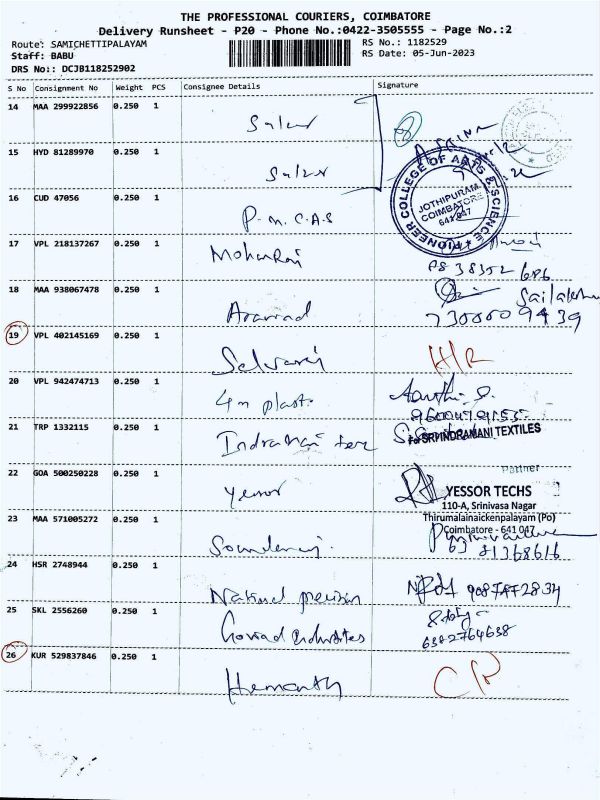 THE PROFESSIONAL COURIERS, COIMBATORE
Delivery Runsheet - P20 - Phone No.:0422-3505555 - Page No.:2
Route: SAMICHETTIPALAYAM RS No.: 1182529
Staff: BABU RS Date: 05-Jun-2023
DRS No:: DCJB118252902
S No Consignment No Weight PCS Consignee Details Signature
14 MAA 299922856 0.250 1
Sulur
15 HYD 81289970 0.250 1
Sulur
PIONEER COLLEGE OF ARTS & SCIENCE
JOTHIPURAM
COIMBATORE
641 047
16 CUD 47056 0.250 1
P.M.C.A.S
17 VPL 218137267 0.250 1
Mohanraj
18 MAA 938067478 0.250 1
Aravind
7300009439
19 VPL 402145169 0.250 1
Selvaraj H/R
20 VPL 942474713 0.250 1
4m plast
21 TRP 1332115 0.250 1
Indramani tex
for SRI INDRAMANI TEXTILES
Partner
22 GOA 500250228 0.250 1
Yessor
YESSOR TECHS
110-A, Srinivasa Nagar
Thirumalainaickenpalayam (Po)
Coimbatore - 641 047
23 MAA 571005272 0.250 1
24 HSR 2748944 0.250 1
National precision
25 SKL 2556260 0.250 1
Govind Industries
6382764638
26 KUR 529837846 0.250 1
Hemanth